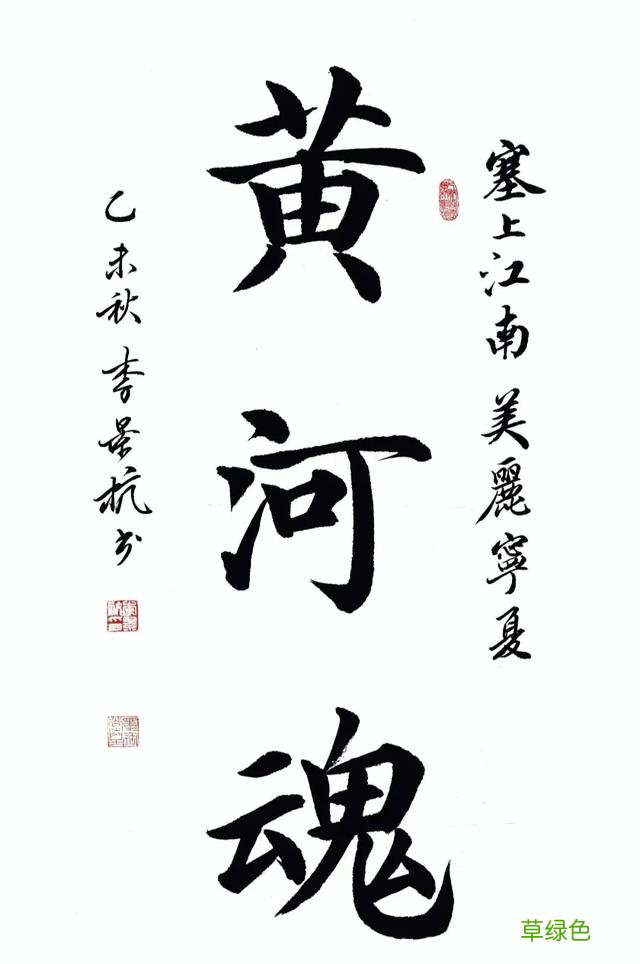 塞上江南 美麗寧夏
黄河魂
乙未秋 李景杭书
草绿色